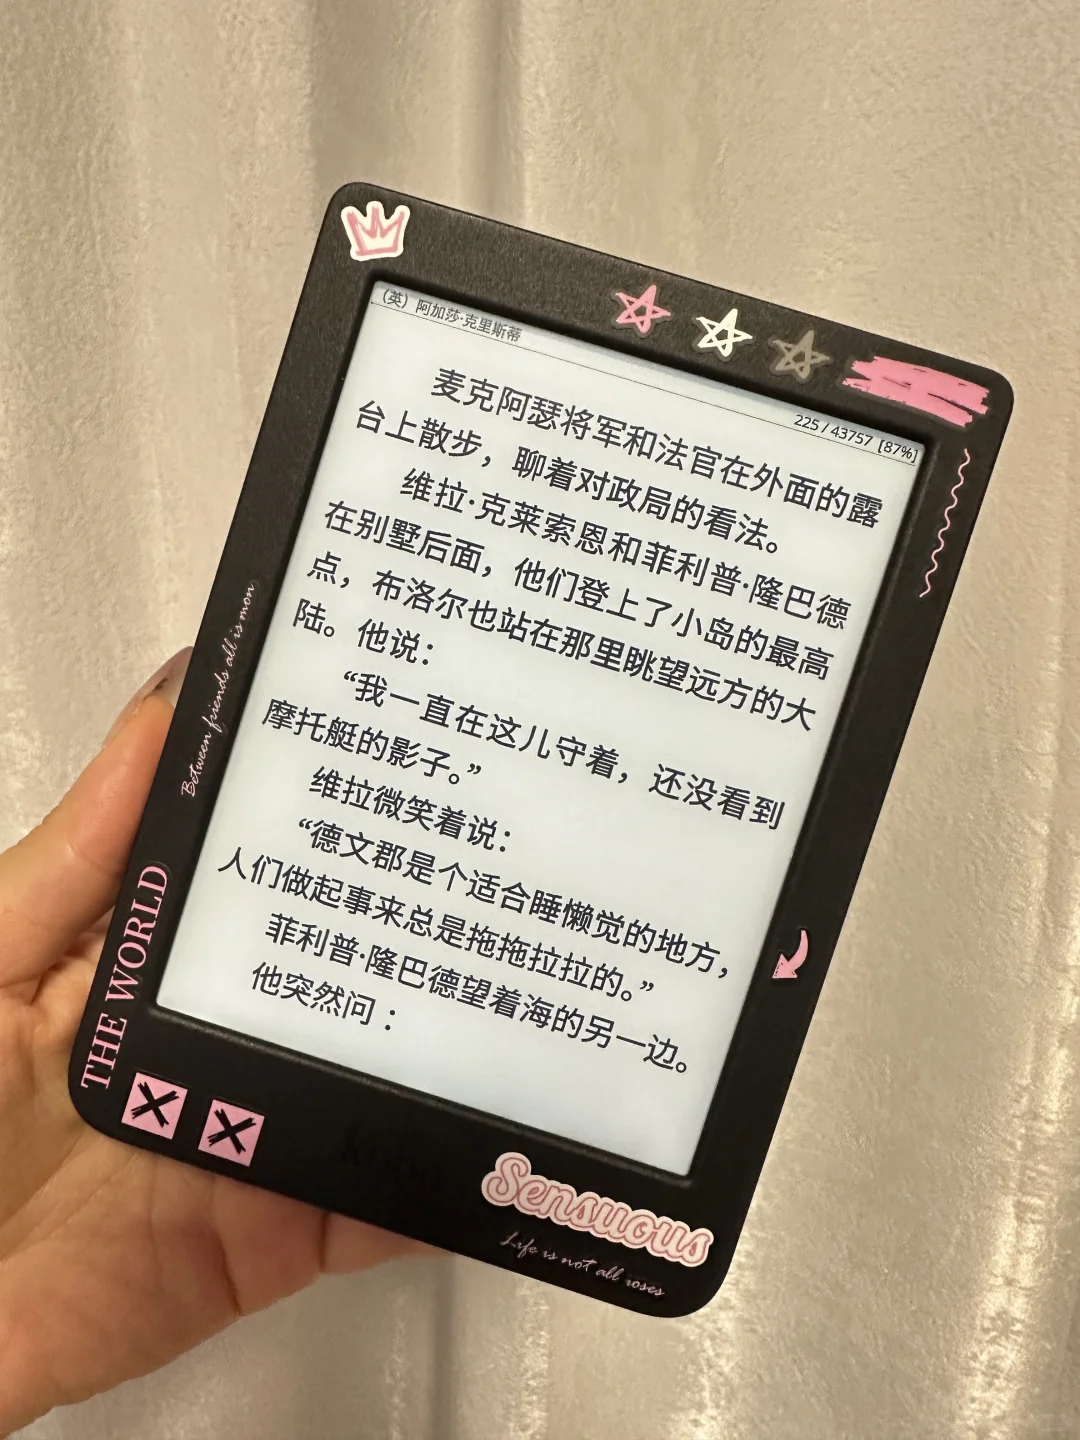 （英）阿加莎·克里斯蒂
225 / 43757 [87%]
麦克阿瑟将军和法官在外面的露
台上散步，聊着对政局的看法。
维拉·克莱索恩和菲利普·隆巴德
在别墅后面，他们登上了小岛的最高
点，布洛尔也站在那里眺望远方的大
陆。他说：
“我一直在这儿守着，还没看到
摩托艇的影子。”
维拉微笑着说：
“德文郡是个适合睡懒觉的地方，
人们做起事来总是拖拖拉拉的。”
菲利普·隆巴德望着海的另一边。
他突然问：
Between friends all is mon
THE WORLD
Sensuous
Life is not all roses